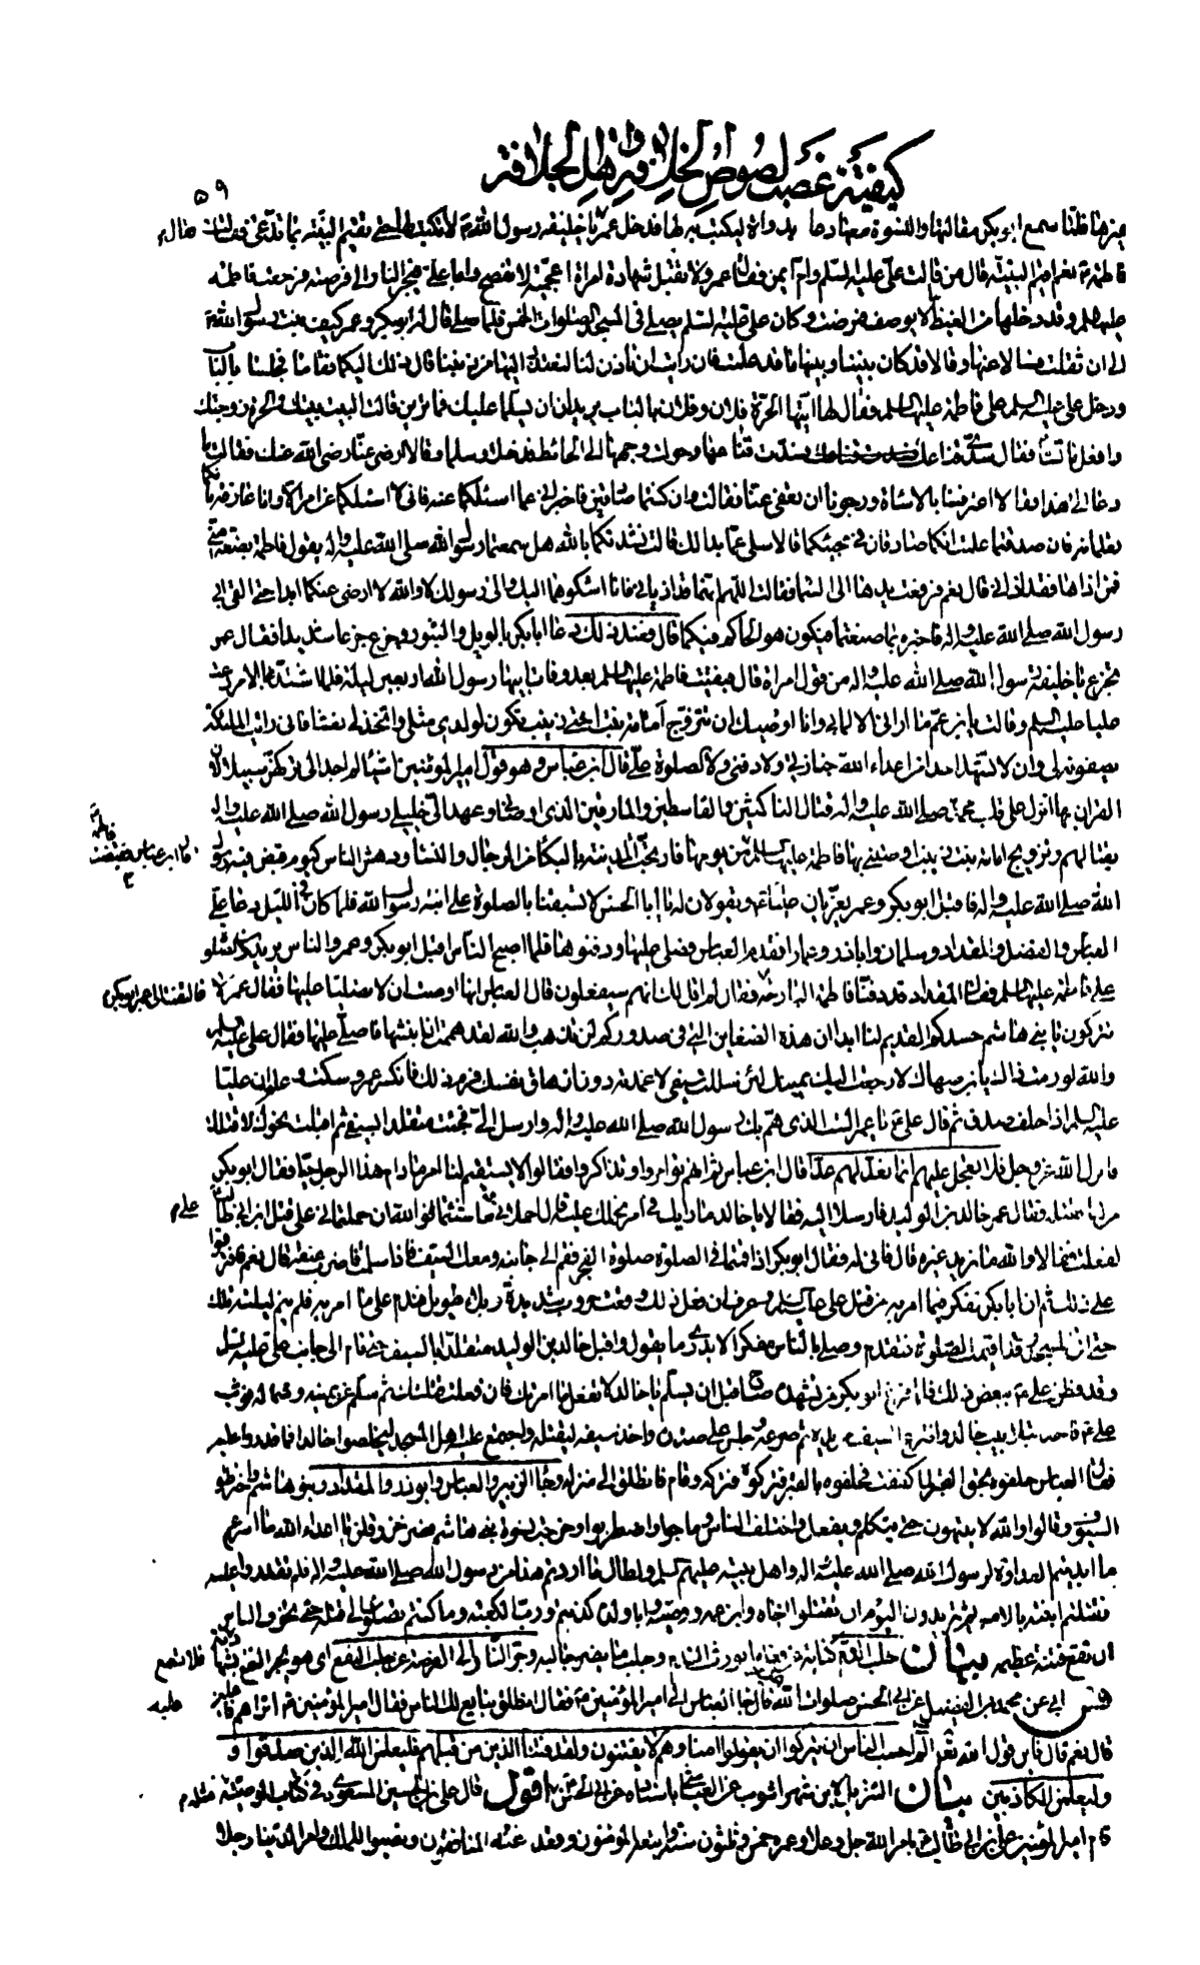 كيفية غصب لصوص الخلافة و أهل الجلافة
٥٩
فلما سمع ابوبكر مقالتها والنسوة معها دعا بدواة ليكتب به لها فدخل عمر فقال يا خليفة رسول الله لا تكتب لها حتى تقيم البينة بما تدعى فقالت
فاطمة نعم اقيم البينة قال من قالت على عليه السلم وام ايمن فقال عمر ولا تقبل شهادة امراة اعجمية لا تفصح واما على فيجر النار الى قرصته فرجعت فاطمة
عليها السلم وقد دخلها من الغيظ ما لا يوصف فمرضت وكان على عليه السلم يصلى فى المسجد الصلوات الخمس فلما صلى قال له ابوبكر وعمر كيف بنت رسول الله
الى ان ثقلت فسالا عنها وقالا قد كان بيننا وبينها ما قد علمت فان رايت ان تاذن لنا لنعتذر اليها من ذنبنا قال ذلك اليكما فقاما فجلسا بالباب
ودخل على عليه السلم على فاطمة عليها السلم فقال لها ايتها الحرة فلان وفلان بالباب يريدان ان يسلما عليك فما ترين قالت البيت بيتك والحرة زوجتك
وافعل ما تشاء فقال سدى قناعك فسدت قناعها وحولت وجهها الى الحائط فدخلا وسلما وقالا ارضى عنا رضى الله عنك فقالت ما
دعا الى هذا فقالا اعترفنا بالاساءة ورجونا ان تعفى عنا فقالت ان كنتما صادقين فاخبرانى عما اسئلكما عنه فانى لا اسئلكما عن امر الا وانا عارفة بانكما
تعلمانه فان صدقتما علمت انكما صادقان فى مجيئكما قالا سلى عما بدا لك قالت نشدتكما بالله هل سمعتما رسول الله صلى الله عليه واله يقول فاطمة بضعة منى
فمن اذاها فقد اذانى قالا نعم فرفعت يدها الى السماء فقالت اللهم انهما قد اذيانى فانا اشكوهما اليك والى رسولك لا والله لا ارضى عنكما ابدا حتى القى ابى
رسول الله صلى الله عليه واله فاخبره بما صنعتما فيكون هو الحاكم فيكما قال فعند ذلك دعا ابوبكر بالويل والثبور وجزع جزعا شديدا فقال عمر
تجزع يا خليفة رسول الله صلى الله عليه واله من قول امراة قال فبقيت فاطمة عليها السلم بعد وفات ابيها رسول الله اربعين ليلة فلما اشتد بها الامر دعت
عليا عليه السلم وقالت يا بن عم ما ارانى الا لما بى وانا اوصيك ان تتزوج امامة بنت اختى زينب تكون لولدى مثلى واتخذ لى نعشا فانى رايت الملئكة
يصفونه لى وان لا تشهد احدا من اعداء الله جنازتى ولا دفنى ولا الصلوة على قال ابن عباس وهو قول امير المؤمنين اشياء لم اجد الى تركهن سبيلا لان
القران بها انزل على قلب محمد صلى الله عليه واله قتال الناكثين والقاسطين والمارقين الذى اوصانى وعهد الى خليلى رسول الله صلى الله عليه واله
بقتالهم وتزويج امامة بنت زينب اوصتنى بها فاطمة عليها السلم
قال ابن عباس فقبضت
فاطمة
من يومها فارتجت المدينة بالبكاء من الرجال والنساء ودهش الناس كيوم قبض فيه رسول
الله صلى الله عليه واله فاقبل ابوبكر وعمر يعزيان عليا ويقولان له يا ابا الحسن لا تسبقنا بالصلوة على ابنة رسول الله فلما كان فى الليل دعا على
العباس والفضل والمقداد وسلمان وابا ذر وعمارا فقدم العباس فصلى عليها ودفنوها فلما اصبح الناس اقبل ابوبكر وعمر والناس يريدون الصلوة
على فاطمة عليها السلم فقال المقداد قد دفنا فاطمة البارحة
فالتفت عمر الى ابى بكر
فقال لم اقل لك انهم سيفعلون قال العباس انها اوصت ان لا تصليا عليها فقال عمر لا
تتركون يا بنى هاشم حسدكم القديم لنا ابدا ان هذه الضغاين التى فى صدوركم لن تذهب والله لقد هممت ان انبشها فاصلى عليها فقال على عليه السلم
والله لو رمت ذاك يا بن صهاك لا رجعت اليك يمينك لئن سللت سيفى لا غمدته دون ازهاق نفسك فرم ذلك فانكسر عمر وسكت وعلم ان عليا
عليه السلم اذا حلف صدق ثم قال على يا عمر الست الذى هم بك رسول الله صلى الله عليه واله وارسل الى فجئت متقلدا بسيفى ثم اقبلت نحوك لاقتلك
فانزل الله عز وجل فلا تعجل عليهم انما نعد لهم عدا قال ابن عباس ثم انهم توامروا وتذاكروا فقالوا لا يستقيم لنا امر ما دام هذا الرجل حيا فقال ابوبكر
من لنا بقتله فقال عمر خالد بن الوليد فارسلا اليه فقالا يا خالد ما رايك فى امر نحملك عليه قال احملانى على ما شئتما فوالله ان حملتمانى على قتل ابن ابى طالب
لفعلت فقالا والله ما نريد غيره قال فانى له فقال ابوبكر اذا قمنا فى الصلوة صلوة الفجر فقم الى جانبه ومعك السيف فاذا سلمت فاضرب عنقه قال نعم فافترقوا
على ذلك ثم ان ابابكر تفكر فيما امر به من قتل على عليه السلم وعرف ان فعل ذلك وقعت حرب شديدة وبلاء طويل فندم على ما امر به فلم ينم ليلته تلك
حتى اتى المسجد وقد اقيمت الصلوة فتقدم وصلى بالناس مفكرا لا يدرى ما يقول واقبل خالد بن الوليد متقلدا بالسيف حتى قام الى جانب على عليه السلم
وقد فطن على ببعض ذلك فلما فرغ ابوبكر من تشهده صاح قبل ان يسلم يا خالد لا تفعل ما امرتك فان فعلت قتلتك ثم سلم عن يمينه وشماله فوثب
على فاخذ بتلابيب خالد وانتزع السيف من يده ثم صرعه وجلس على صدره واخذ سيفه ليقتله واجتمع عليه اهل المسجد ليخلصوا خالدا فما قدروا عليه
فقال العباس حلفوه بحق القبر لما كففت فحلفوه بالقبر فتركه وقام فانطلق الى منزله وجاء الزبير والعباس وابوذر والمقداد وبنو هاشم واخترطوا
السيوف وقالوا والله لا ينتهون حتى يتكلم ويفعل واختلف الناس وماجوا واضطربوا وخرجت نسوة بنى هاشم فصرخن وقلن يا اعداء الله ما اسرع
ما ابديتم العداوة لرسول الله صلى الله عليه واله واهل بيته عليهم السلم ولطال ما اردتم هذا من رسول الله صلى الله عليه واله فلم تقدروا عليه
فقتلتم ابنته بالامس ثم تريدون اليوم ان تقتلوا اخاه وابن عمه ووصيه وابا ولده كذبتم ورب الكعبة وما كنتم تصلون الى قتله حتى تخوف الناس
ان تقع فتنة عظيمة بيان
ابى عن محمد بن الفضيل عن ابى الحسن صلوات الله عليه قال جاء العباس الى امير المؤمنين فقال انطلق نبايع لك الناس فقال امير المؤمنين اتراهم فاعلين
قال نعم قال فاين قول الله تعالى الم احسب الناس ان يتركوا ان يقولوا امنا وهم لا يفتنون ولقد فتنا الذين من قبلهم فليعلمن الله الذين صدقوا و
وليعلمن الكاذبين بيان
اقول قال على بن الحسين المسعودى فى كتاب الوصية
قام امير المؤمنين على بن ابى طالب بامر الله جل وعلا وعمره خمس وثلثون سنة واتبعه المؤمنون وقعد عنه المنافقون ونصبوا للملك وامر الدنيا رجلا